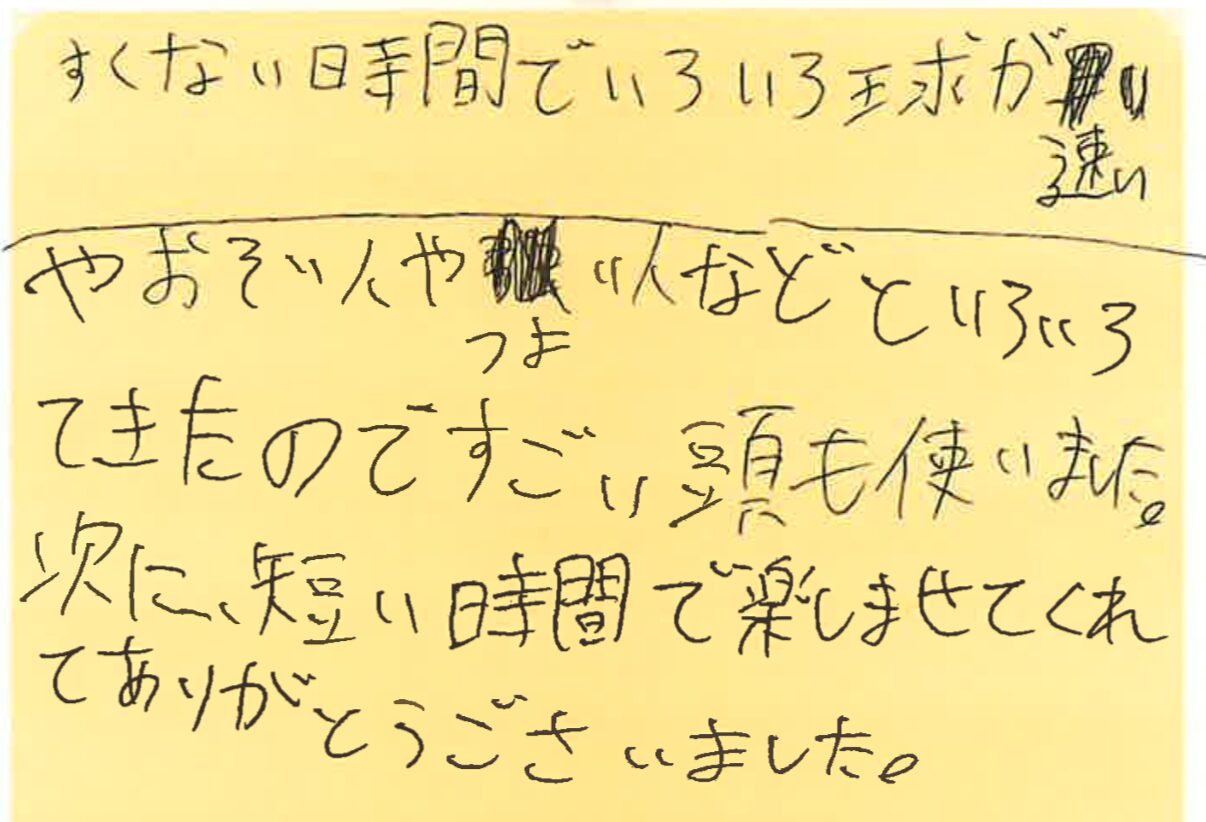 すくない時間でいろいろ球が速い
やおそい人やつよい人などといろいろ
てきたのですごい頭も使いました。
次に、短い時間で楽しませてくれ
てありがとうごさいました。